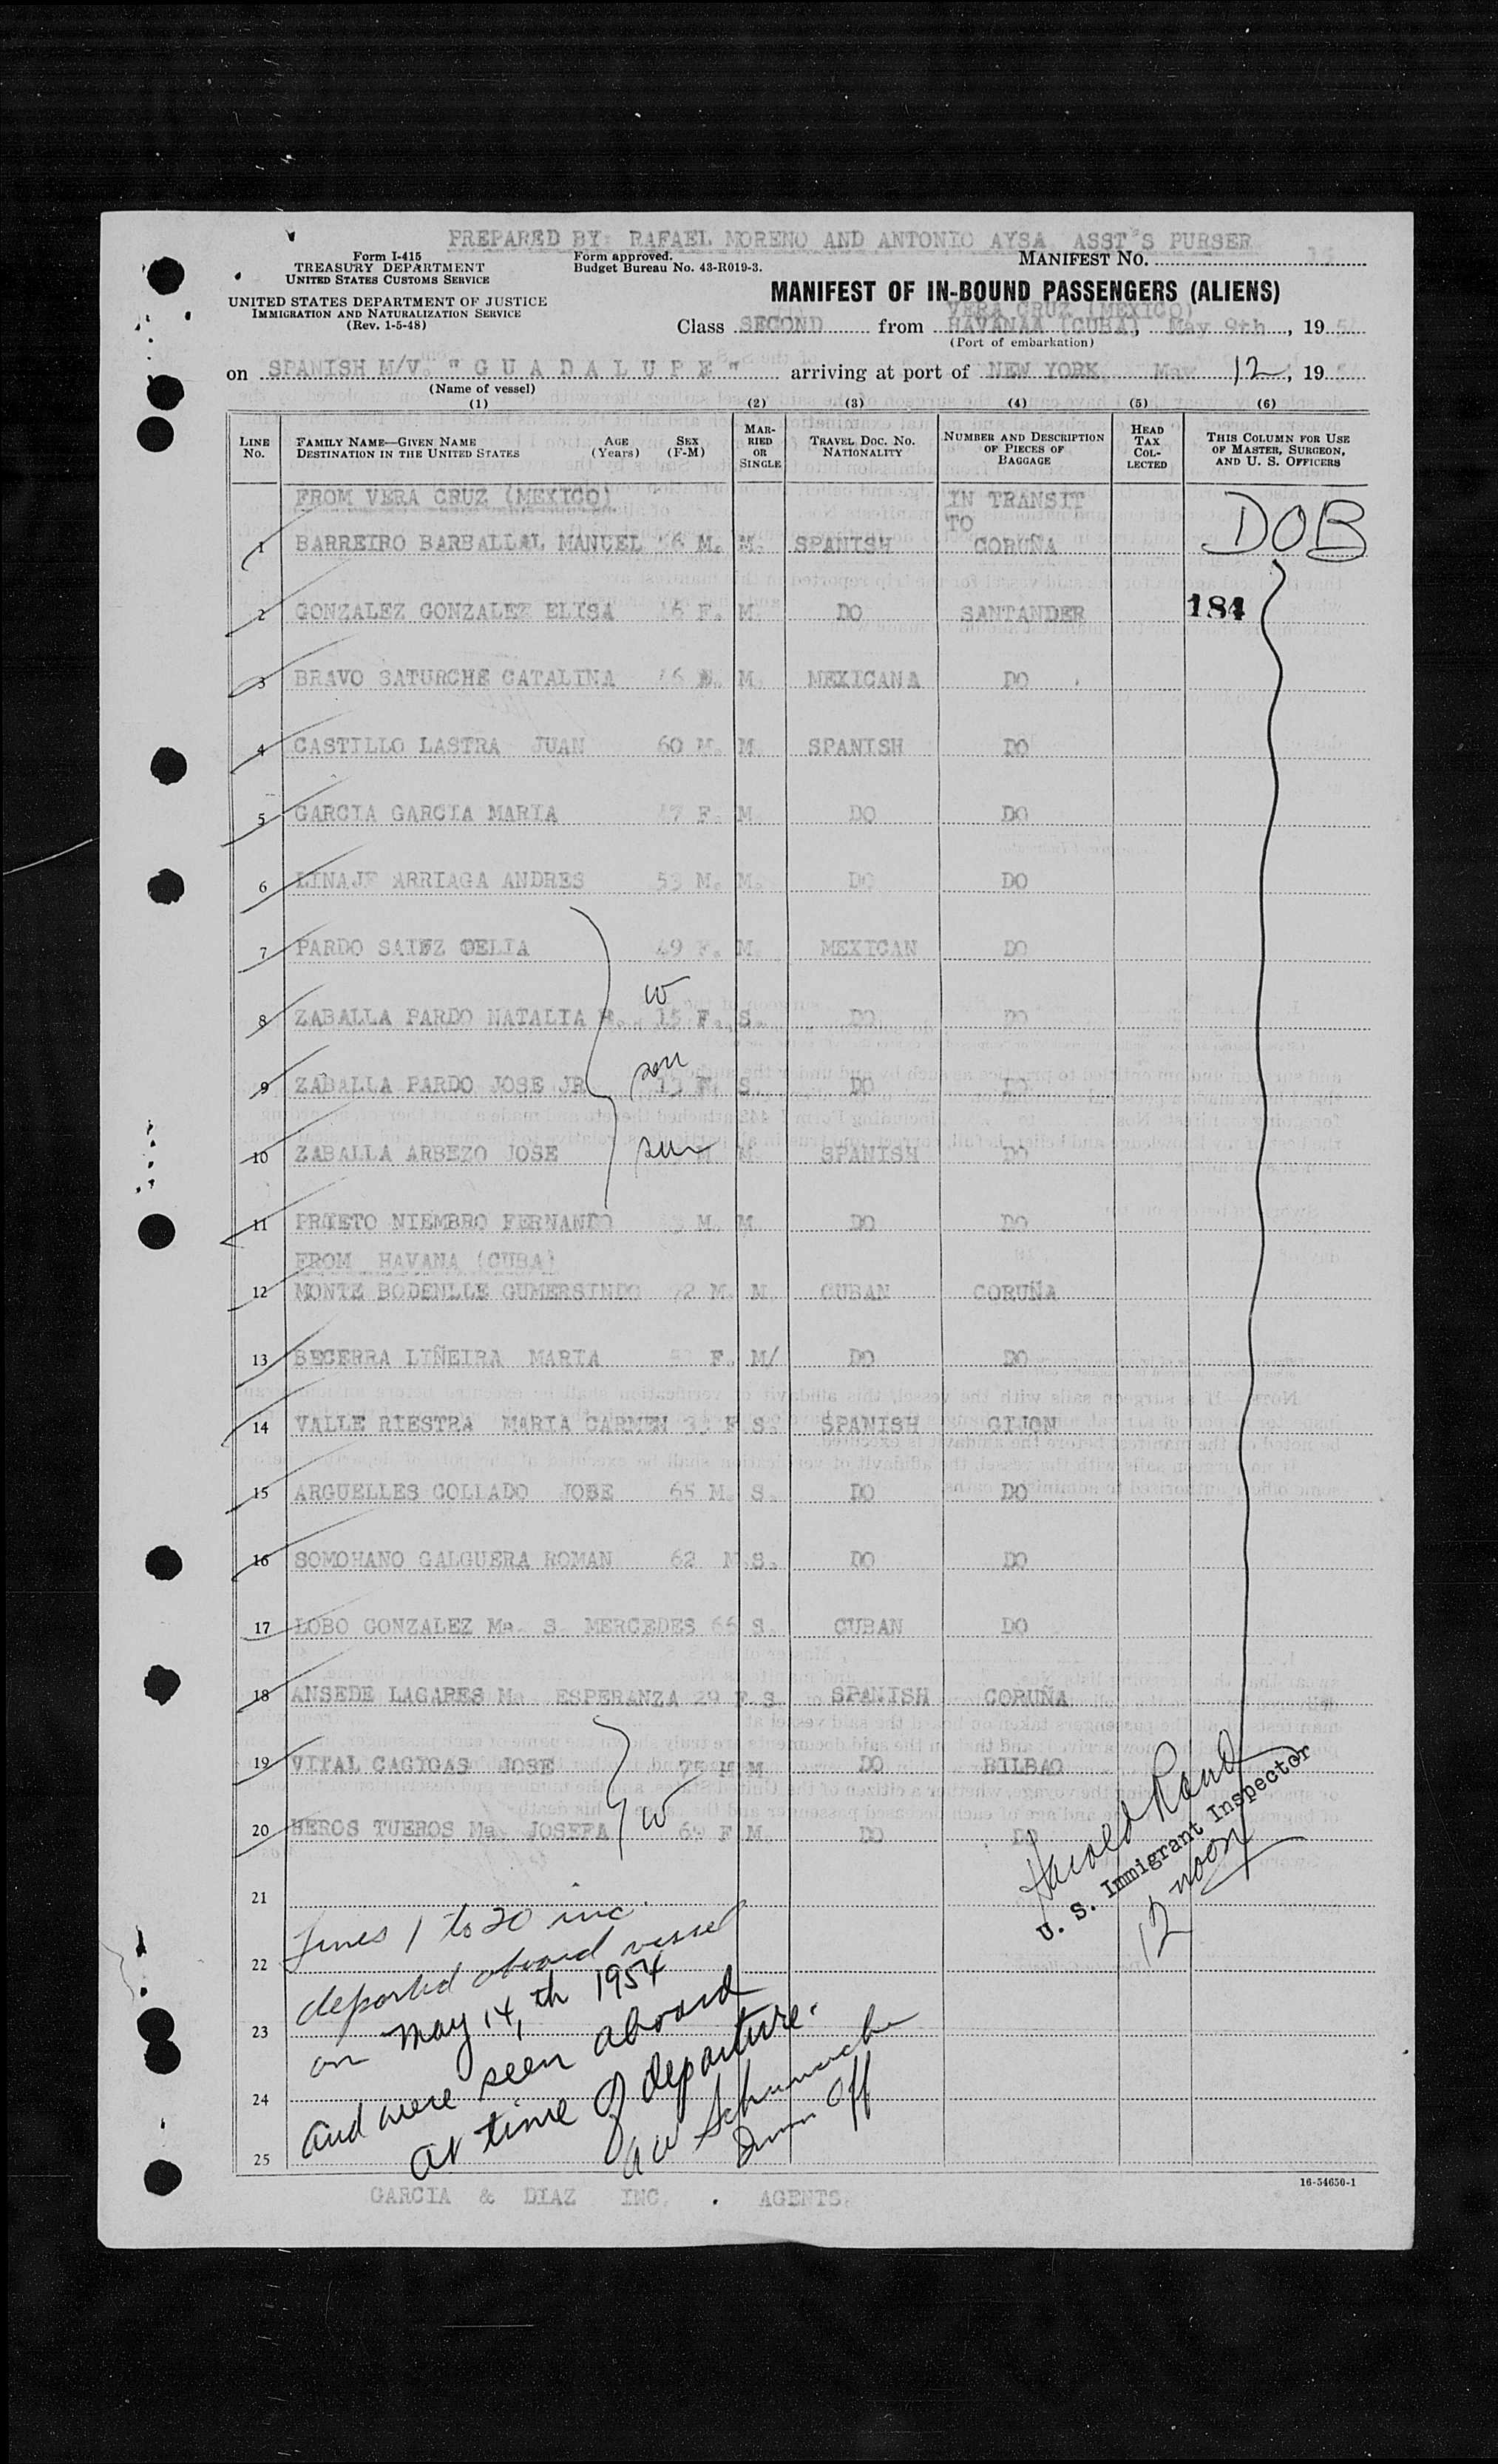 PREPARED BY: RAFAEL MORENO AND ANTONIO AYSA ASST'S PURSER
Form I-415
TREASURY DEPARTMENT
UNITED STATES CUSTOMS SERVICE
UNITED STATES DEPARTMENT OF JUSTICE
IMMIGRATION AND NATURALIZATION SERVICE
(Rev. 1-5-48)
Form approved.
Budget Bureau No. 43-R019-3.
MANIFEST NO.
MANIFEST OF IN-BOUND PASSENGERS (ALIENS)
VERA CRUZ (MEXICO)
Class SECOND from HAVANAA (CUBA), May 9th, 195
(Port of embarkation)
on SPANISH M/V. "G U A D A L U P E" arriving at port of NEW YORK, May 12, 195
(Name of vessel)
(1) (2) (3) (4) (5) (6)
LINE No. FAMILY NAME—GIVEN NAME DESTINATION IN THE UNITED STATES AGE (Years) SEX (F-M) MARRIED OR SINGLE TRAVEL DOC. NO. NATIONALITY NUMBER AND DESCRIPTION OF PIECES OF BAGGAGE HEAD TAX COLLECTED THIS COLUMN FOR USE OF MASTER, SURGEON, AND U. S. OFFICERS
FROM VERA CRUZ (MEXICO) IN TRANSIT TO
1 BARREIRO BARBALLAL MANUEL M. M. SPANISH CORUÑA DOB
2 GONZALEZ GONZALEZ ELISA F. M. DO SANTANDER 184
3 BRAVO SATURCHE CATALINA M. MEXICANA DO
4 CASTILLO LASTRA JUAN 60 M. M. SPANISH DO
5 GARCIA GARCIA MARIA 47 F. M. DO DO
6 LINAJE ARRIAGA ANDRES 53 M. M. DO DO
7 PARDO SAINZ OELIA 49 F. M. MEXICAN DO
W
8 ZABALLA PARDO NATALIA 15 F. S. DO DO
son
9 ZABALLA PARDO JOSE JR 13 S. DO DO
10 ZABALLA ARBEZO JOSE M. M. SPANISH DO
11 PRIETO NIEMBRO FERNANDO M. M. DO DO
FROM HAVANA (CUBA)
12 MONTE BODENLLE GUMERSINDO 72 M. M. CUBAN CORUÑA
13 BECERRA LIÑEIRA MARIA F. M/ DO DO
14 VALLE RIESTRA MARIA CARMEN F S. SPANISH GIJON
15 ARGUELLES COLLADO JOSE 65 M. S. DO DO
16 SOMOHANO GALGUERA ROMAN 62 M.S. DO DO
17 LOBO GONZALEZ Ma. S. MERCEDES 66 S. CUBAN DO
18 ANSEDE LAGARES Ma ESPERANZA 29 F.S. SPANISH CORUÑA
19 VITAL CAGIGAS JOSE 75 M M. DO BILBAO
20 HEROS TUEROS Ma. JOSEFA W 69 F M. DO DO
Harold
U. S. Immigrant Inspector
12 noon
21
22
23
24
25
Lines 1 to 20 inc.
departed aboard vessel
on May 14,th 1954
and were seen aboard
at time of departure.
A W Schumacher
Imm Off
GARCIA & DIAZ INC. . AGENTS.
16-54650-1